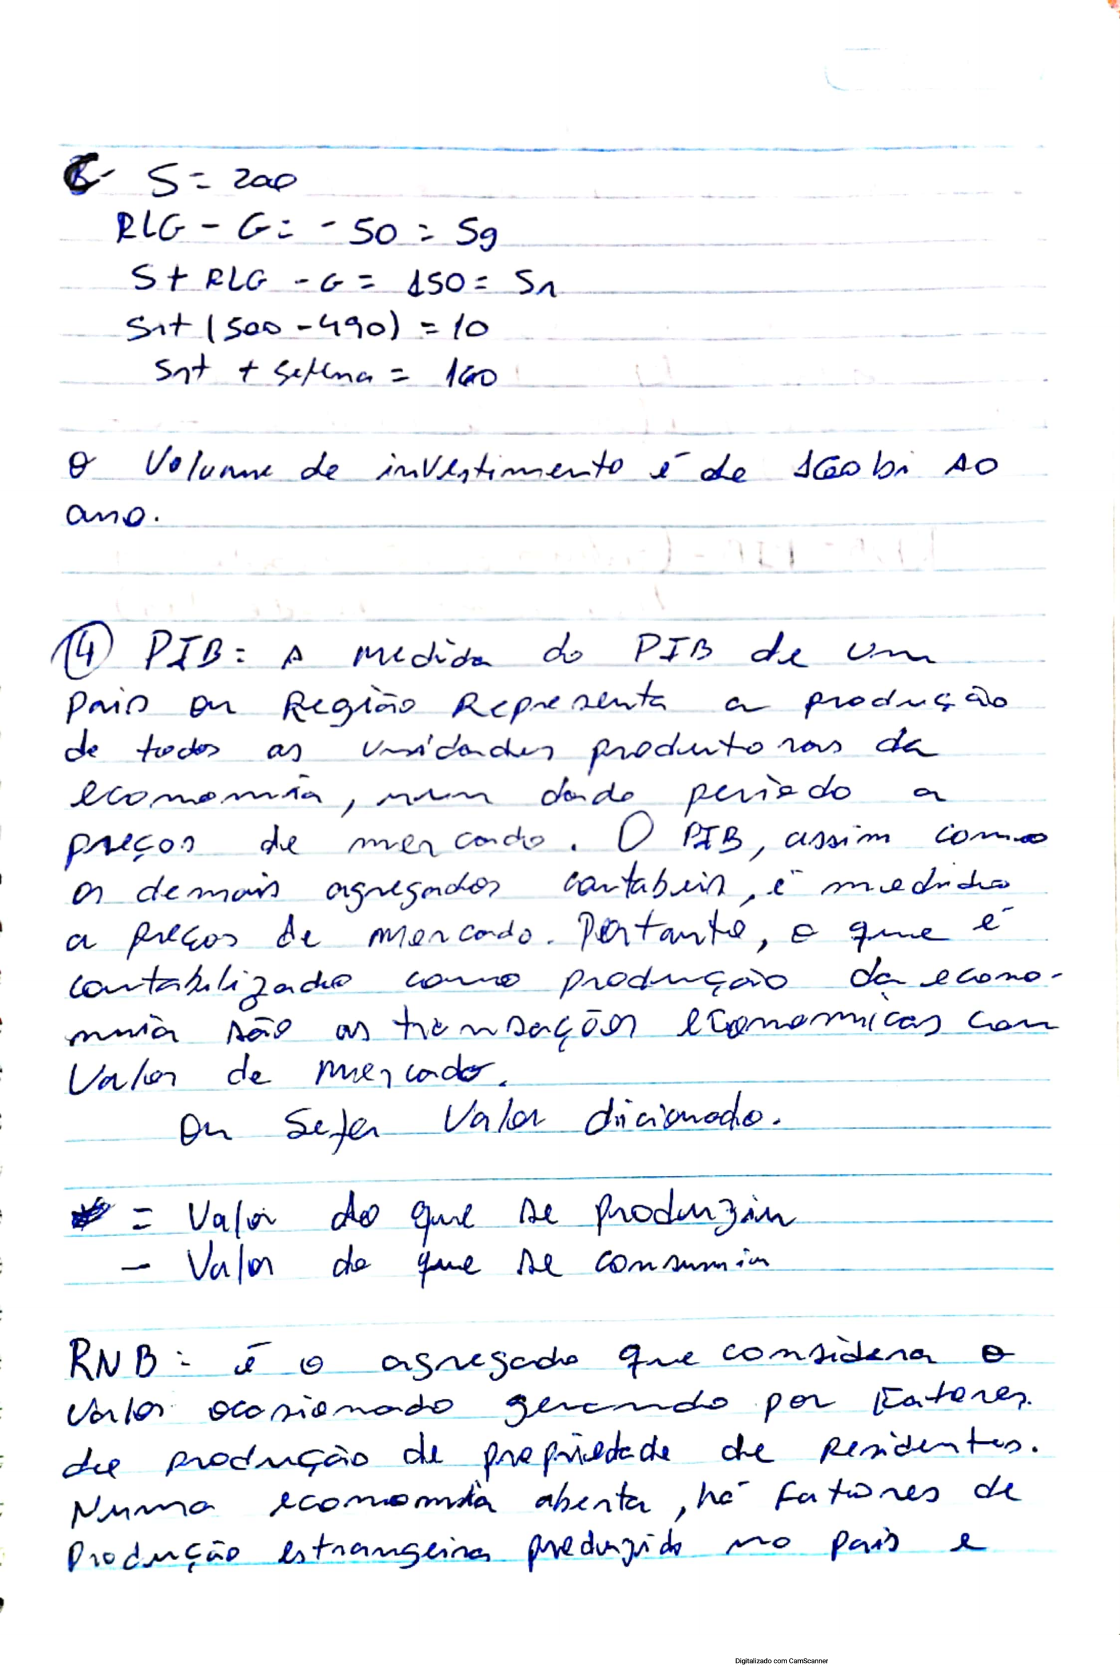 C- S = 200
RLG - G = - 50 = Sg
S + RLG - G = 150 = Sn
Snt (500 - 490) = 10
Snt + Setena = 160
O Volume de investimento é de 160 bi AO
ano.
4 PIB: A medida do PIB de um
País ou Região Representa a produção
de todos as unidades produtoras da
economia, num dado período a
preços de mercado. O PIB, assim como
os demais agregados contabeis, é medido
a preços de mercado. Portanto, o que é
contabilizado como produção da econo-
mia são as transações economicas com
Valor de mercado.
Ou Seja Valor dicionado.
= Valor do que se produziu
- Valor do que se consumiu
RNB: é o agregado que considera o
Valor ocasionado gerando por Fatores.
de produção de propriedade de Residentes.
Numa economia aberta, há Fatores de
Produção estrangeira produzido no país e
Digitalizado com CamScanner